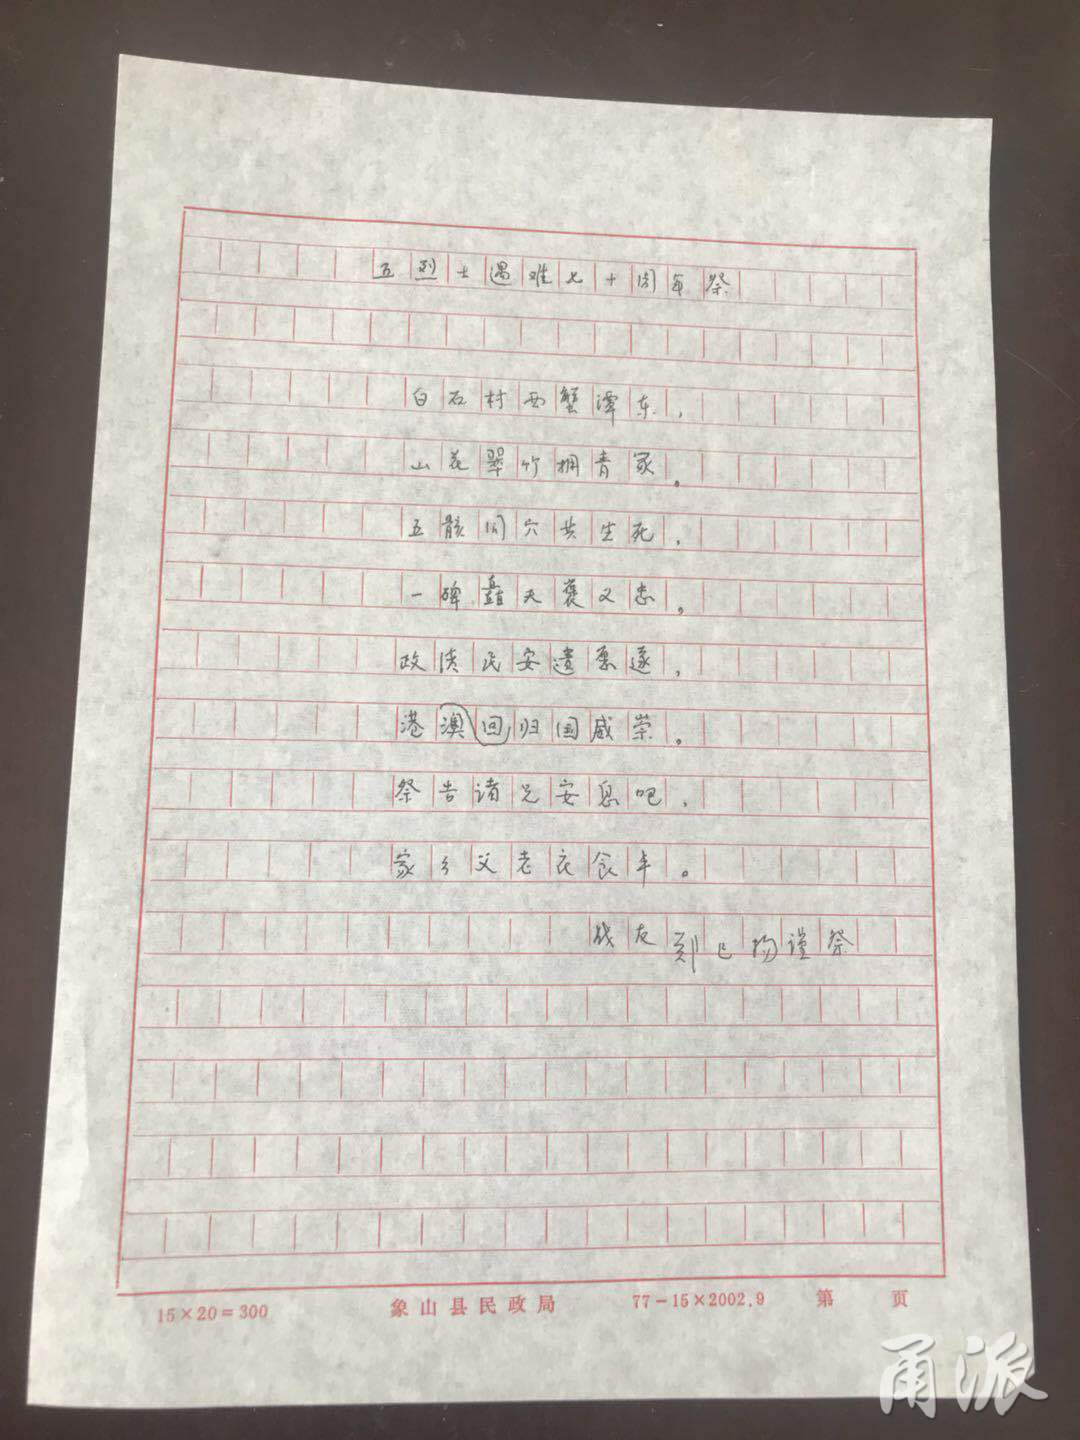 五烈士遇难七十周年祭
白石村西蟹潭东，
山花翠竹拥青冢。
五骸同穴共生死，
一碑矗天褒义忠。
政清民安遗愿遂，
港澳回归国威崇。
祭告诸兄安息吧，
家乡父老衣食丰。
战友 郑已 谨祭
15×20=300 象山县民政局 77-15×2002.9 第 页
甬派